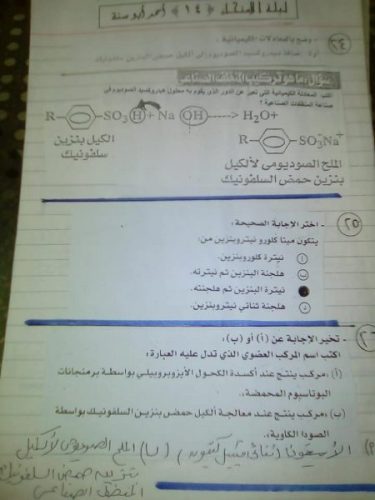 ليلة الامتحان (١٤) أحمد أبو سنة
٢٤
- وضح بالمعادلات الكيميائية:
أولا: إضافة هيدروكسيد الصوديوم إلى ألكيل حمض البنزين سلفونيك
سؤال: ما هو تركيب المنظف الصناعى
اكتب المعادلة الكيميائية التي تعبر عن الدور الذي يقوم به محلول هيدروكسيد الصوديوم في
صناعة المنظفات الصناعية؟
R SO₃ H + Na OH → H₂O+
R SO₃⁻Na⁺
الكيل بنزين
سلفونيك
الملح الصوديومى لألكيل
بنزين حمض السلفونيك
٢٥
- اختر الإجابة الصحيحة:
يتكون ميتا كلورو نيتروبنزين من:
أ نيترة كلوروبنزين.
ب هلجنة البنزين ثم نيترته.
نيترة البنزين ثم هلجنته.
د هلجنة ثنائي نيتروبنزين.
٢٦
- تخير الإجابة عن (أ) أو (ب):
اكتب اسم المركب العضوي الذي تدل عليه العبارة:
(أ) مركب ينتج عند أكسدة الكحول الأيزوبروبيلي بواسطة برمنجانات
البوتاسيوم المحمضة.
(ب) مركب ينتج عند معالجة ألكيل حمض بنزين السلفونيك بواسطة
الصودا الكاوية.
الأسيتون (ثنائى ميثيل كيتون) (ب) الملح الصوديومى لألكيل
بنزين حمض السلفونيك
المنظف الصناعى